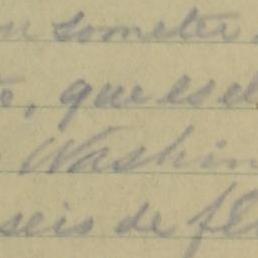 someter
, que es el
Washin
seis de fe